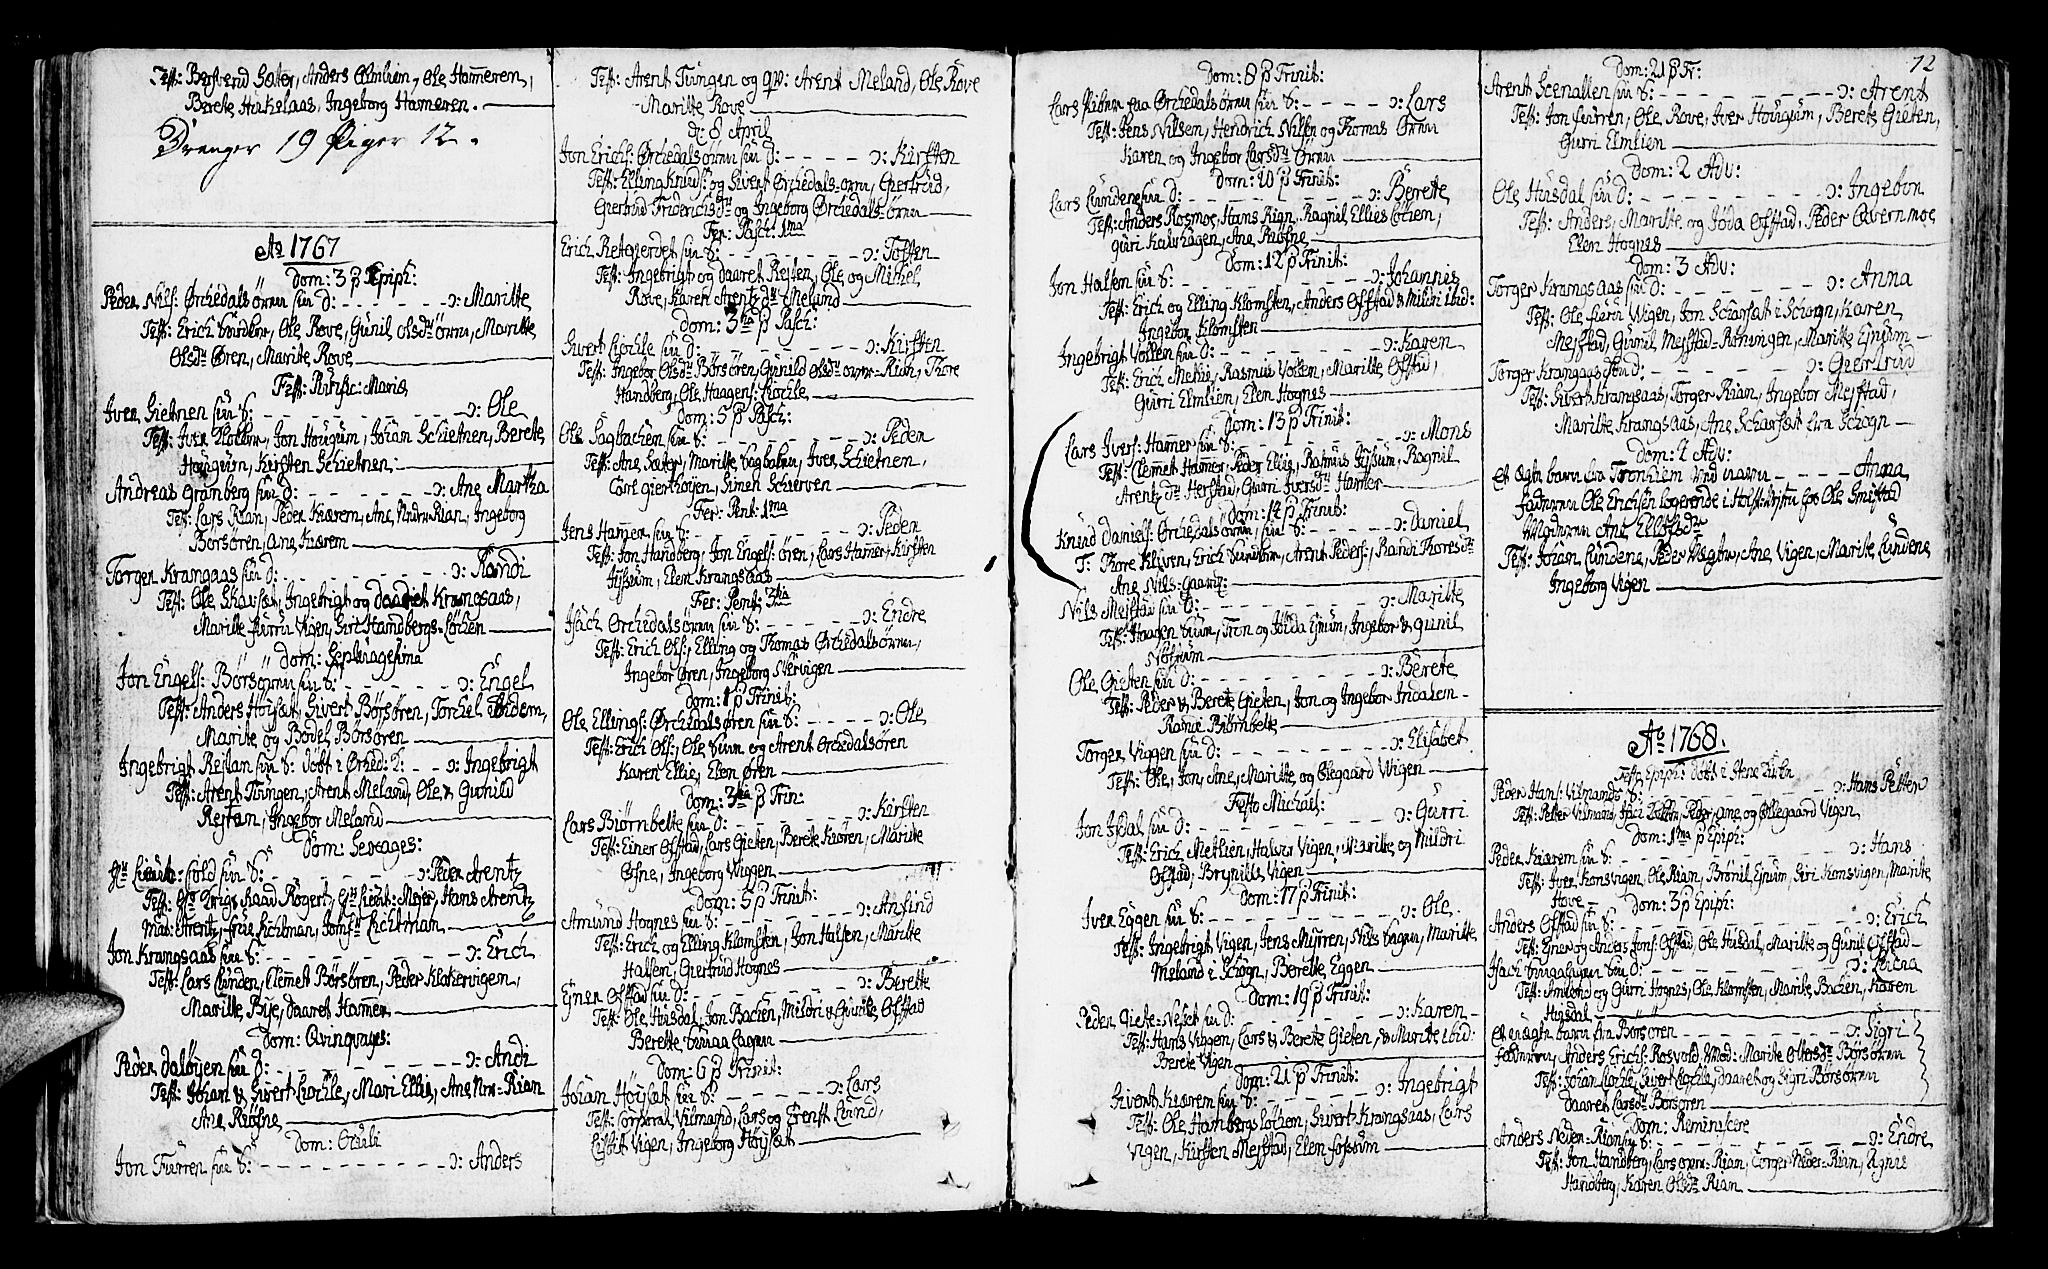 Test: Berete Hukelaas, Ingeborg Hameren.
Drenger 19 Piger 12.
Ao 1767
Dom: 3 p Epiph:
Peder Nilss: Ørchedalsørnn sin D: - - - - - ɔ: Maritte
Test: Erich, Ole Rove, Gunil olsdtr ørnn, Maritte
Olsdtr Øren, Marite Rove
Fest: Purific: Mariæ
Iver Sietnen sin S: - - - - - ɔ: Ole
Test: Iver, Jon Hougum, Johan Schietnen, Berete
Hougum, Kirsten Schietnen:
Andreas Granberg sin D: - - - - - ɔ: Ane Martha
Test: Lars Rian, Peder Kiærem, Ane Rian, Ingeborg
Børsøren, Ane Kiærem
Torger Krangsaas sin D: - - - - - ɔ: Randi
Test: Ole Skavsæt, Ingebrigt og daaret Krangsaas,
Maritte Vigen, Hambergs-Løchen
Dom: Septuagesima
Jon Engels: Børsørnn sin S: - - - - - ɔ: Engel
Test: Anders Høisæt, Sivert Børsøren, Torchel
Marite og Bodel Børsøren
Ingebrigt Restan sin S: døbt i Ørked: - - ɔ: Ingebrigt
Test: Arent Tungen, Arent Meland, Ole & Gunild
Restan, Ingebor Meland
Dom: Sexages:
Lieut: sin S: - - - - - ɔ: Peder Arentz
Test: Krigs Raad Rogert, Lieut: Meyer, Hans Arentz
Mad: Arentz, frue Lichtman, Jomfr Lichtman
Jon Krangsaas sin S: - - - - - ɔ: Erich
Test: Lars Lunden, Clemmet Børsøren, Peder Klokervigen,
Maritte Bye, daaret Hamer
Dom: Qvinquages:
Peder daløyen sin D: - - - - - ɔ: Andi
Test: Johan & Sivert Lochle, Mari Ellis, Ane Rian
Ane Riøsne
Dom: Oculi
Jon Furren sin S: - - - - - ɔ: Anders
Test: Arent Tungen og qv: Arent Meland, Ole Rove
Maritte Rove
d: 8 April
Jon Erichs: Ørchedalsørnn sin D: - - - - ɔ: Kirsten
Test: Elling Knuds: og Sivert Ørchedals-ørnn, Giertrud,
Giertrud Friderichsdtr og Ingeborg Ørchedals-ørnn
Fer: Pasch: 1ma
Erich sin S: - - - - - ɔ: Tosten
Test: Ingebrigt og daaret Resten, Ole og Mikkel
Rove, Karen Arentzdtr Melund
Dom: 3tia p Pasch:
Sivert Lochle sin D: - - - - - ɔ: Kirsten
Test: Ingebor Olsdtr Børsøren, Gunild Olsdtr -Rian, Thore
Handberg, Ole Haagens: Lochle
Dom: 5 p Pasch:
Ole Sagbachen sin S: - - - - - ɔ: Peder
Test: Ane Sæter, Maritte, Iver Schietnen,
Carl, Simen Schierven
Fer: Pent: 1ma
Jens Hamer sin S: - - - - - ɔ: Peder
Test: Jon Handberg, Jon Engels: øren, Lars Hamer, Kirsten
Hyssum, Elen Krangsaas
Fer: Pent: 3tia
Isach Ørchedalsørnn sin S: - - - - - ɔ: Endre
Test: Erich Ols:, Elling og Thomas Ørchedalsørnn,
Ingebor Øren, Ingeborg
Dom: 1 p Trinit:
Ole Ellings: Ørchedalsøren sin S: - - - - ɔ: Ole
Test: Erich Ols:, Ole og Arent Ørchedalsøren
Karen Ellis, Elen øren
Dom: 3tia p Trin:
Lars Biørnbette sin D: - - - - - ɔ: Kirsten
Test: Einer Ofstad, Lars Gieten, Berete Kiøren, Maritte
Øsne, Ingeborg Viggen
Dom: 5 p Trinit:
Amund Hognes sin S: - - - - - ɔ: Anfind
Test: Erich og Elling Klomsten, Jon Halsen, Maritte
Halsen, Giertrud Hognes
Ejner Ofstad sin D: - - - - - ɔ: Berette
Test: Ole Husdal, Jon Bachen, Mildri & Gunild Ofstad
Berette
Dom: 6 p Trinit:
Johan Høysæt sin S: - - - - - ɔ: Lars
Test: Corporal Vilmand, Lars og Ernst Lund,
Lisbet Vigen, Ingeborg Høysæt
Dom: 8 p Trinit:
Lars paa Ørchedalsørnn sin S: - - - - - ɔ: Lars
Test: Jens Nilsen, Hendrich Nilsen og Thomas Ørnn
Karen og Ingebor Larsdtr Ørnn
Dom: 10 p Trinit:
Lars Lundene sin D: - - - - - ɔ: Berete
Test: Anders Rosmoe, Hans Rian, Ragnil Ellies Løchen,
Guri Kalvhagen, Ane Riøsne
Dom: 12 p Trinit:
Jon Halsen sin S: - - - - - ɔ: Johannis
Test: Erich og Elling Klomsten, Anders Ofstad & Mildri ibid:
Ingebor Klomsten
Ingebrigt Vollen sin D: - - - - - ɔ: Karen
Test: Erich, Rasmus Vollen, Maritte Ofstad,
Gurri Elmlien, Elen Hognes
Dom: 13 p Trinit:
Lars Ivers: Hamer sin S: - - - - - ɔ: Mons
Test: Clemet Hamer, Peder Ellis, Rasmus Hyssum, Ragnil
Arentzdtr Herstad, Gurri Iversdtr Hamer
Dom: 14 p Trinit:
Knud Daniels: Ørchedalsørnn, sin S: - - - - ɔ: Daniel
T: Thore Kliven, Erich, Arent Peders:, Randi Thoresdtr
Ane Nils-Gaardz:
Nils Mejstad sin D: - - - - - ɔ: Maritte
Test: Haagen, Tron og Jøda Ejnum, Ingebor & Gunil
Ole Gieten sin D: - - - - - ɔ: Berete
Test: Peder & Berete Gieten, Jon og Ingebor Indalen
Biørnbette
Torger Viggen sin D: - - - - - ɔ: Elisabet
Test: Ole, Jon, Ane, Maritte, og Olegaard Wigen
Festo Michael:
Jon Isdal sin D: - - - - - ɔ: Gurri
Test: Erich, Halvor Vigen, Maritte og Mildri
Ofstad, Brynille Vigen
Dom: 17 p Trinit:
Iver Eggen sin S: - - - - - ɔ: Ole
Test: Ingebrigt Vigen, Jens Myrren, Nils, Maritte
Meland i Schogn, Berette Eggen
Dom: 19 p Trinit:
Peder Giete-Nesset sin D: - - - - - ɔ: Karen
Test: Hans Viggen, Lars & Berete Gieten, & Marite ibid:
Berete Vigen
Dom: 21 p Trinit:
Sivert Kiærem sin S: - - - - - ɔ: Ingebrigt
Test: Ole Hambergsløchen, Sivert Krangsaas, Lars
Vigen, Kirsten Mejstad, Elen Fossum
12
Dom: 21 p Tr:
Arent Scenallen sin S: - - - - - ɔ: Arent
Test: Jon Furren, Ole Rove, Iver Hougum, Berete Gieten,
Gurri Elmlien
Dom: 2 Adv:
Ole Husdal sin D: - - - - - ɔ: Ingebor
Test: Anders, Maritte og Jøda Ofstad, Peder Lavernmoe
Elen Hognes
Dom: 3 Adv:
Torger Krangsaas sin D: - - - - - ɔ: Anna
Test: Ole Wigen, Jon Scharsæt i Schogn, Karen
Mejstad, Gunil Mejstad-Rønningen, Maritte Ejnum
Torger Krangaas sin D: - - - - - ɔ: Giertrud
Test: Sivert Krangsaas, Torger Rian, Ingebor Mejstad,
Maritte Krangsaas, Ane Scharsæt fra Schogn
Dom: 2 Adv:
Et ægte barn fra Tronhiem ved navn - - - - Anna
Fadrnn Ole Erichsen logerende i hos Ole Smistad
Modrnn Ane Ellefsdtr
Test: Johan Lundene, Peder, Ane Vigen, Marite Lundene
Ingeborg Vigen
Ao 1768.
Festo Epiph: døbt i Stene Kirke
Peder Hans: Vilmands S: - - - - - ɔ: Hans Petter
Test: Peter Vilmand, Isach, Peder, Ane og Ollegaard Vigen
Dom: 1ma p Epiph:
Peder Kiærem sin S: - - - - - ɔ: Hans
Test: Iver Konsvigen, Ole Rian, Brønil Ejnum, Siri Konsvigen, Marite
Hove
Dom: 3 p Epiph:
Anders Ofstad sin S: - - - - - ɔ: Erich
Test: Ejner og Anders Jons: Ofstad, Ole Husdal, Maritte og Gunil Ofstad
Isach sin D: - - - - - ɔ:
Test: Amund og Gurri Hognes, Ole Klomsten, Marite Bachen, Karen
Husdal
Et uægte barn fra Børsøren - - - - - ɔ: Sigri
fadrnn Anders Erichs: Rosvold Mod: Maritte Olversdtr Børsørnn
Test: Johan Lochle, Sivert Lochle, daaret og Sigri Børsørnn
daaret Larsdtr Børsøren
Dom: Reminiscere
Anders Neder-Rian sin S: - - - - - ɔ: Endre
Test: Jon Handberg, Lars -Rian, Torger Neder-Rian, Agnis
Handberg, Karen Olsdtr Rian